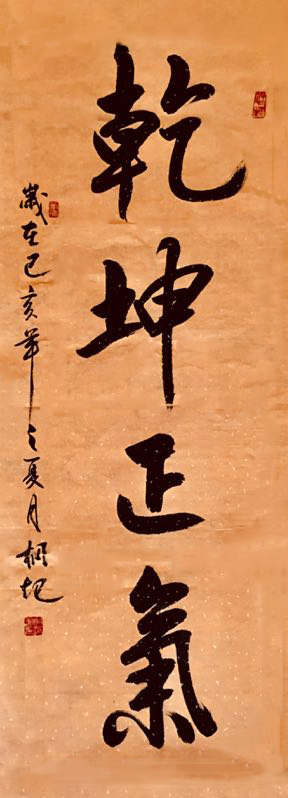 乾坤正氣
歲在己亥年之夏月